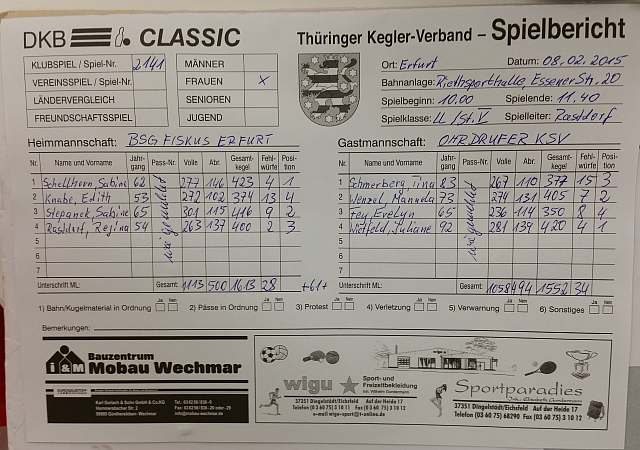 DKB & CLASSIC
Thüringer Kegler-Verband – Spielbericht
KLUBSPIEL / Spiel-Nr. 2141 MÄNNER
VEREINSSPIEL / Spiel-Nr. FRAUEN x
LÄNDERVERGLEICH SENIOREN
FREUNDSCHAFTSSPIEL JUGEND
Ort: Erfurt Datum: 08.02.2015
Bahnanlage: Riethsporthalle, Essener Str. 20
Spielbeginn: 10.00 Spielende: 11.40
Spielklasse: Spielleiter: Rasdorf
Heimmannschaft: BSG FISKUS ERFURT Gastmannschaft: OHRDRUFER KSV
Nr. Name und Vorname Jahrgang Pass-Nr. Volle Abr. Gesamtkegel Fehlwürfe Position
1 Schellhorn, Sabine 62 277 146 423 4 1
2 Knabe, Edith 53 272 102 374 13 4
3 Stepanek, Sabine 65 301 115 416 9 2
4 Rasdorf, Regina 54 263 137 400 2 3
5
6
7
Unterschrift ML: Gesamt: 1113 500 1613 28 +61+
Nr. Name und Vorname Jahrgang Pass-Nr. Volle Abr. Gesamtkegel Fehlwürfe Position
1 Schmerberg, Tina 83 267 110 377 15 3
2 Wenzel, Manuela 73 274 131 405 7 2
3 Fey, Evelyn 65 236 114 350 8 4
4 Juliane 92 281 139 420 4 1
5
6
7
Unterschrift ML: Gesamt: 1058 494 1552 34
1) Bahn/Kugelmaterial in Ordnung Ja Nein 2) Pässe in Ordnung Ja Nein 3) Protest Ja Nein 4) Verletzung Ja Nein 5) Verwarnung Ja Nein 6) Sonstiges Ja Nein
Bemerkungen:
i&M Bauzentrum
Mobau Wechmar
Karl Gerlach & Sohn GmbH & Co.KG
Hammersbacher Str. 2
99869 Günthersleben-Wechmar
wigu Sport- und Freizeitbekleidung
Inh. Wilhelm Gundermann
37351 Dingelstädt/Eichsfeld Auf der Heide 17
Telefon (0 36 075) 3 10 11 Fax (0 36 075) 3 10 12
e-mail wigu-sport@t-online.de
Sportparadies
Inh. Elisabeth Gundermann
37351 Dingelstädt/Eichsfeld Auf der Heide 17
Telefon (0 36 075) 68290 Fax (0 36 075) 3 10 12